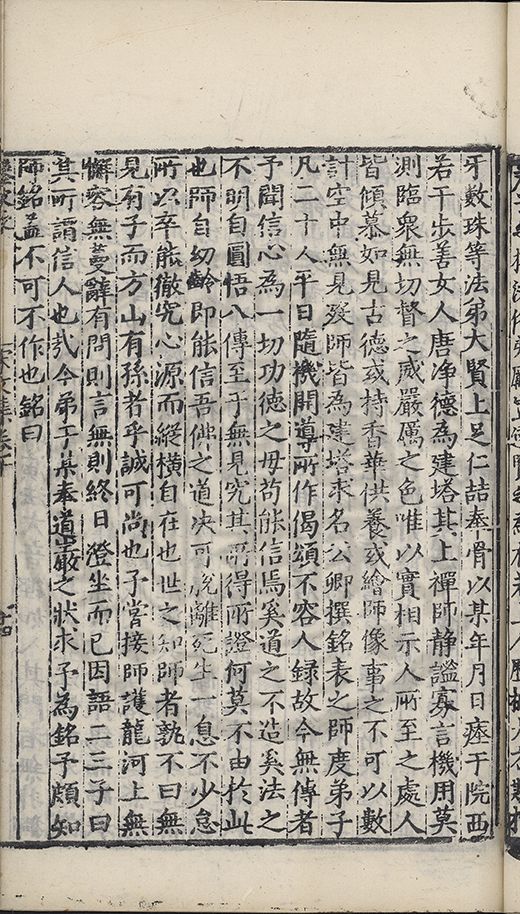 牙數珠等法弟大賢上足仁喆奉骨以某年月日瘞于院西
若干步善女人唐淨德為建塔其上禪師静謐寡言機用莫
測臨衆無切督之威嚴厲之色唯以實相示人所至之處人
皆傾慕如見古德或持香華供養或繪師像事之不可以數
計空中無見發師皆為建塔求名公卿撰銘表之師度弟子
凡二十人平日隨機開導所作偈頌不容人録故今無傳者
予聞信心為一切功徳之母苟能信焉奚道之不造奚法之
不明自圓悟八傳至于無見究其所得所證何莫不由於此
也師自幼齡即能信吾佛之道決可脱離死生一息不少怠
所以卒能徹究心源而縱横自在也世之知師者孰不曰無
見有子而方山有孫者乎誠可尚也予嘗接師護龍河上無
懈容無蔓辭有問則言無則終日澄坐而已因語二三子曰
其所謂信人也哉今弟子某奉道巖之狀求予為銘予頗知
師銘盖不可不作也銘曰